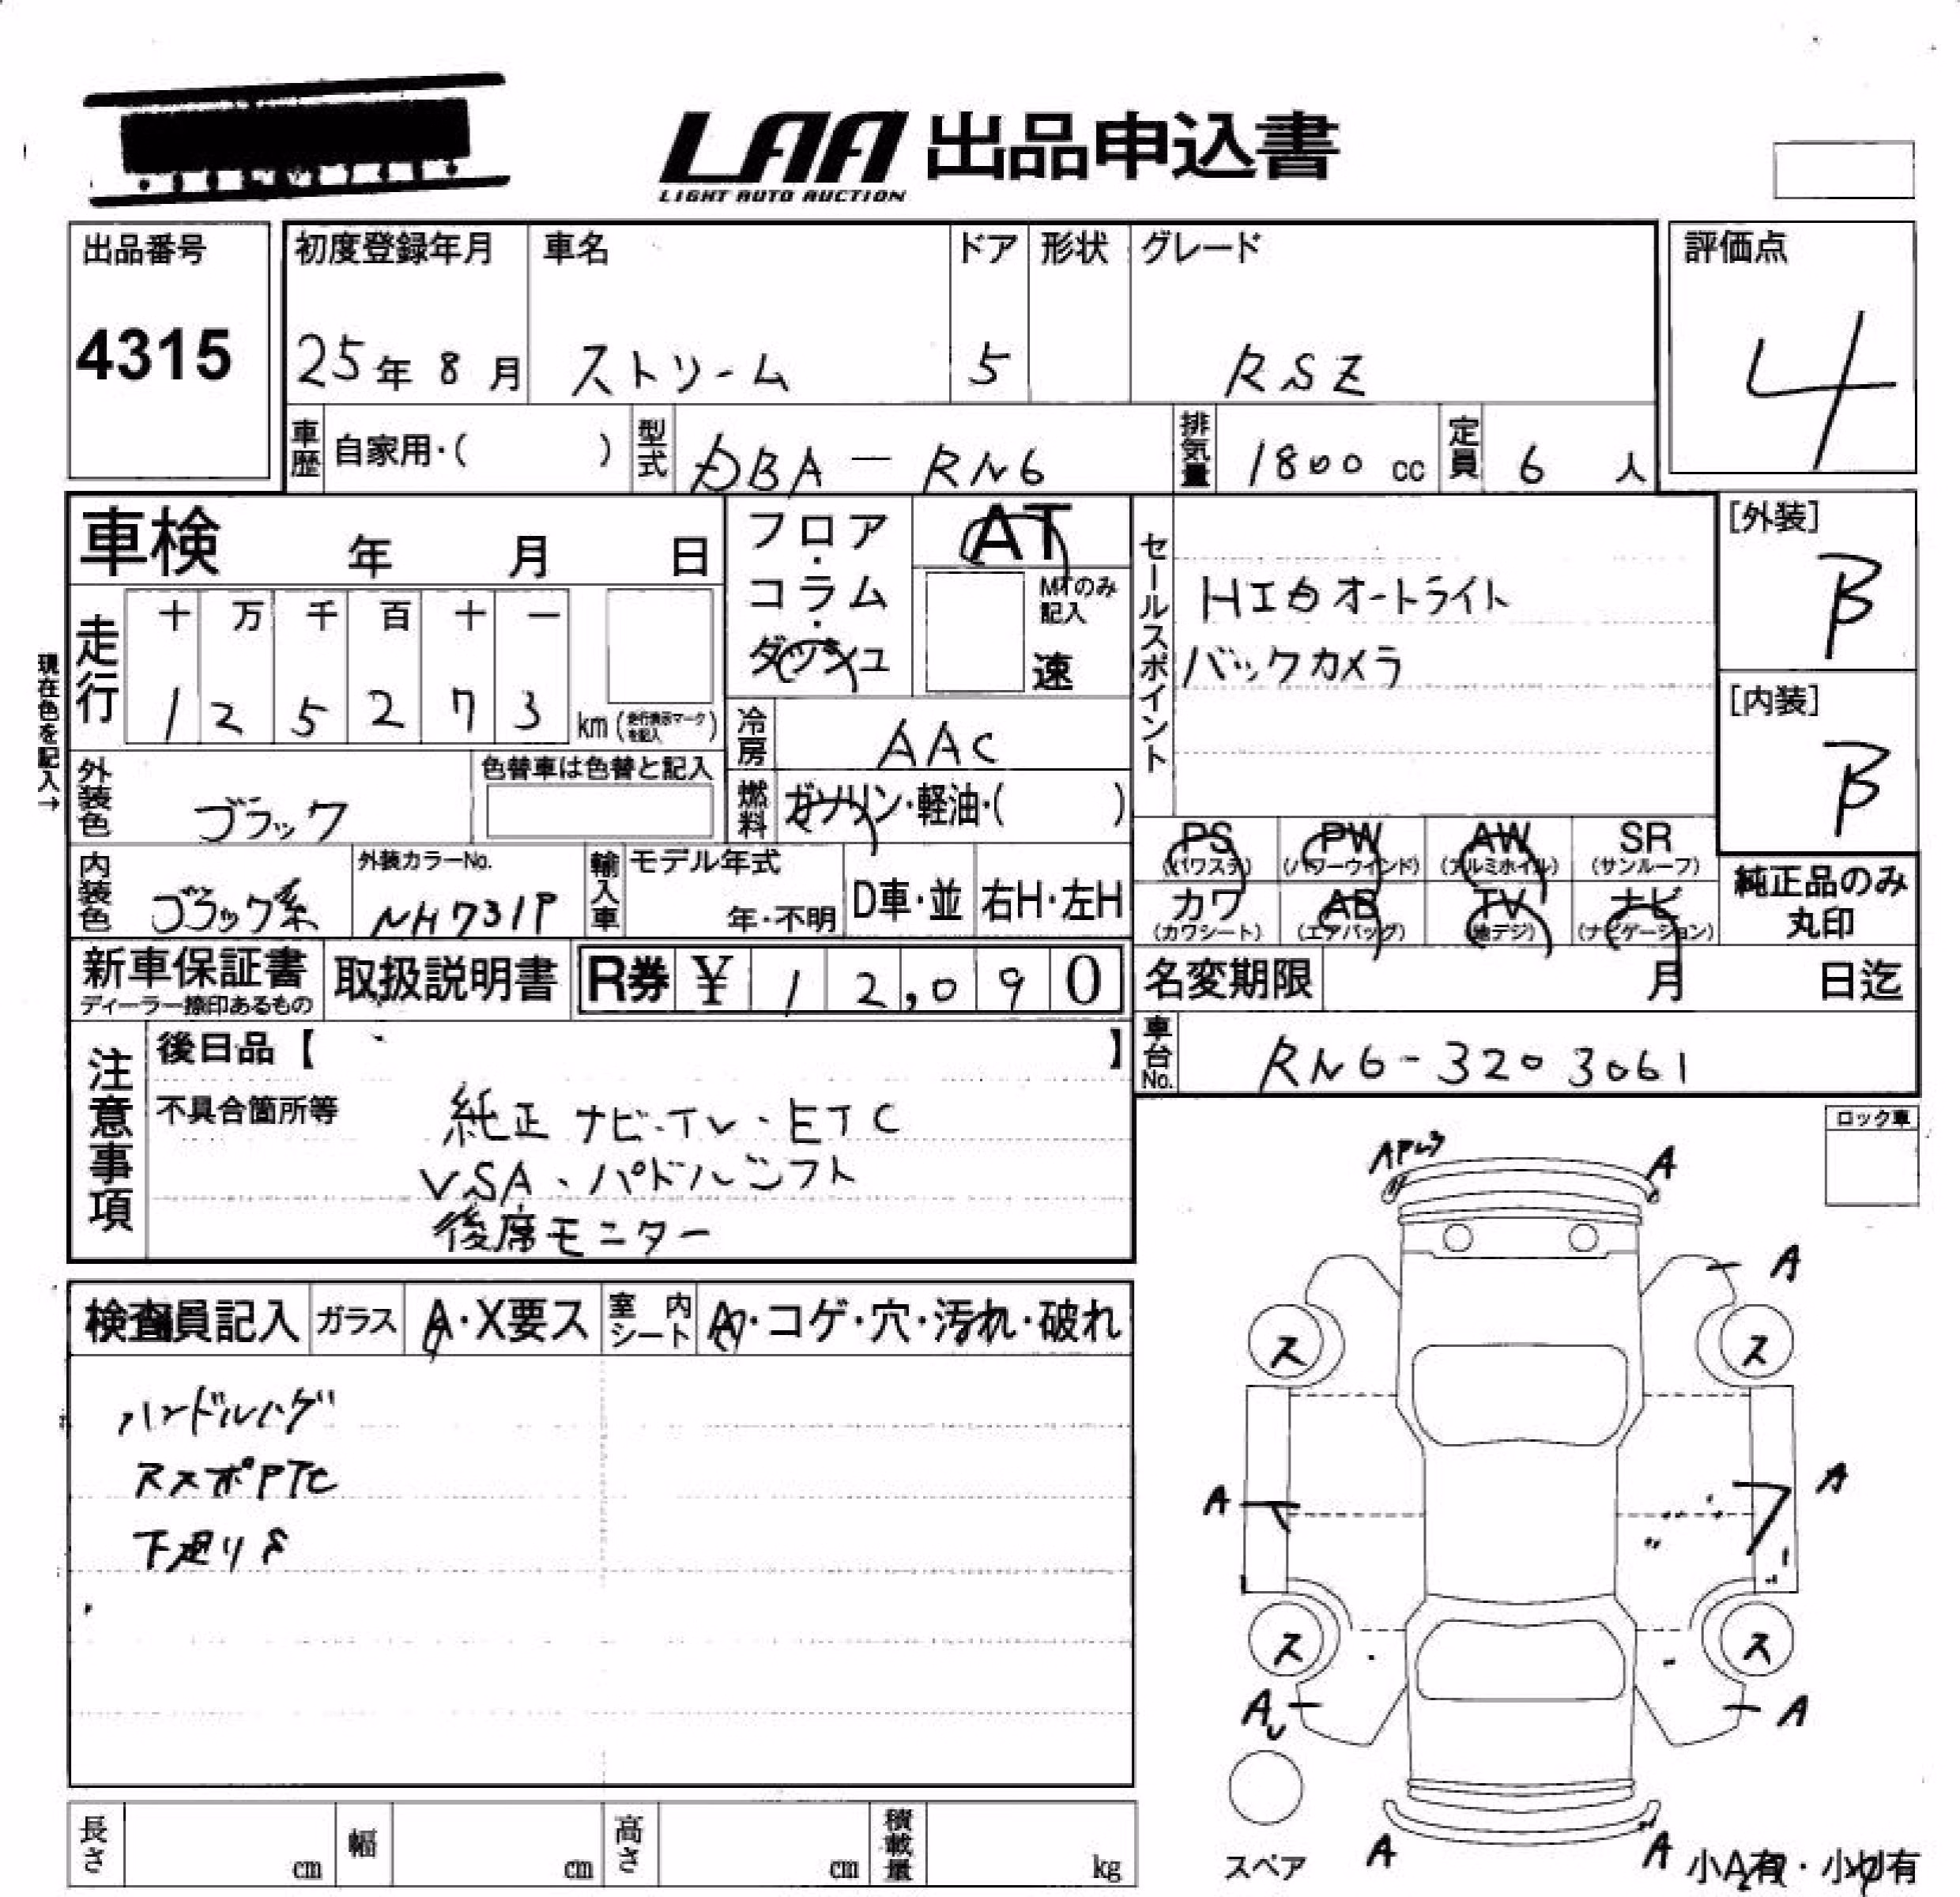 LAA 出品申込書
LIGHT AUTO AUCTION
出品番号
4315
初度登録年月
25年 8月
車名
ストリーム
ドア
5
形状
グレード
RSZ
評価点
4
車歴
自家用・( )
型式
DBA-RN6
排気量
1800 cc
定員
6 人
車検 年 月 日
フロア・コラム・ダッシュ
AT
MTのみ記入
速
セールスポイント
HID オートライト
バックカメラ
[外装]
B
[内装]
B
現在色を記入→
走行
十 万 千 百 十 一
1 2 5 2 7 3 km (走行表示マークを記入)
冷房
AAC
外装色
ブラック
色替車は色替と記入
燃料
ガソリン・軽油・( )
PS (パワステ)
PW (パワーウインド)
AW (アルミホイル)
SR (サンルーフ)
内装色
ブラック系
外装カラーNo.
NH731P
輸入車
モデル年式
年・不明
D車・並
右H・左H
カワ (カワシート)
AB (エアバッグ)
TV (地デジ)
ナビ (ナビゲーション)
純正品のみ丸印
新車保証書
ディーラー捺印あるもの
取扱説明書
R券 ¥ 12,090
名変期限 月 日迄
注意事項
後日品【 】
車台No.
RN6-3203061
不具合箇所等
純正 ナビ・TV・ETC
VSA、パドルシフト
後席モニター
ロック車
検査員記入
ガラス
A・X要ス
室内シート
A・コゲ・穴・汚れ・破れ
ハンドルハゲ
下廻りS
A
A
ス
ス
A
A
ス
ス
AU
A
スペア
A
A
小A有・小U有
長さ cm
幅 cm
高さ cm
積載量 kg